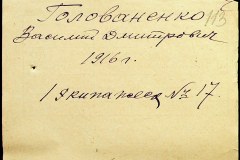 Голованенко 113
Василий Дмитрович
1916 г.
1 Экипажа № 17.